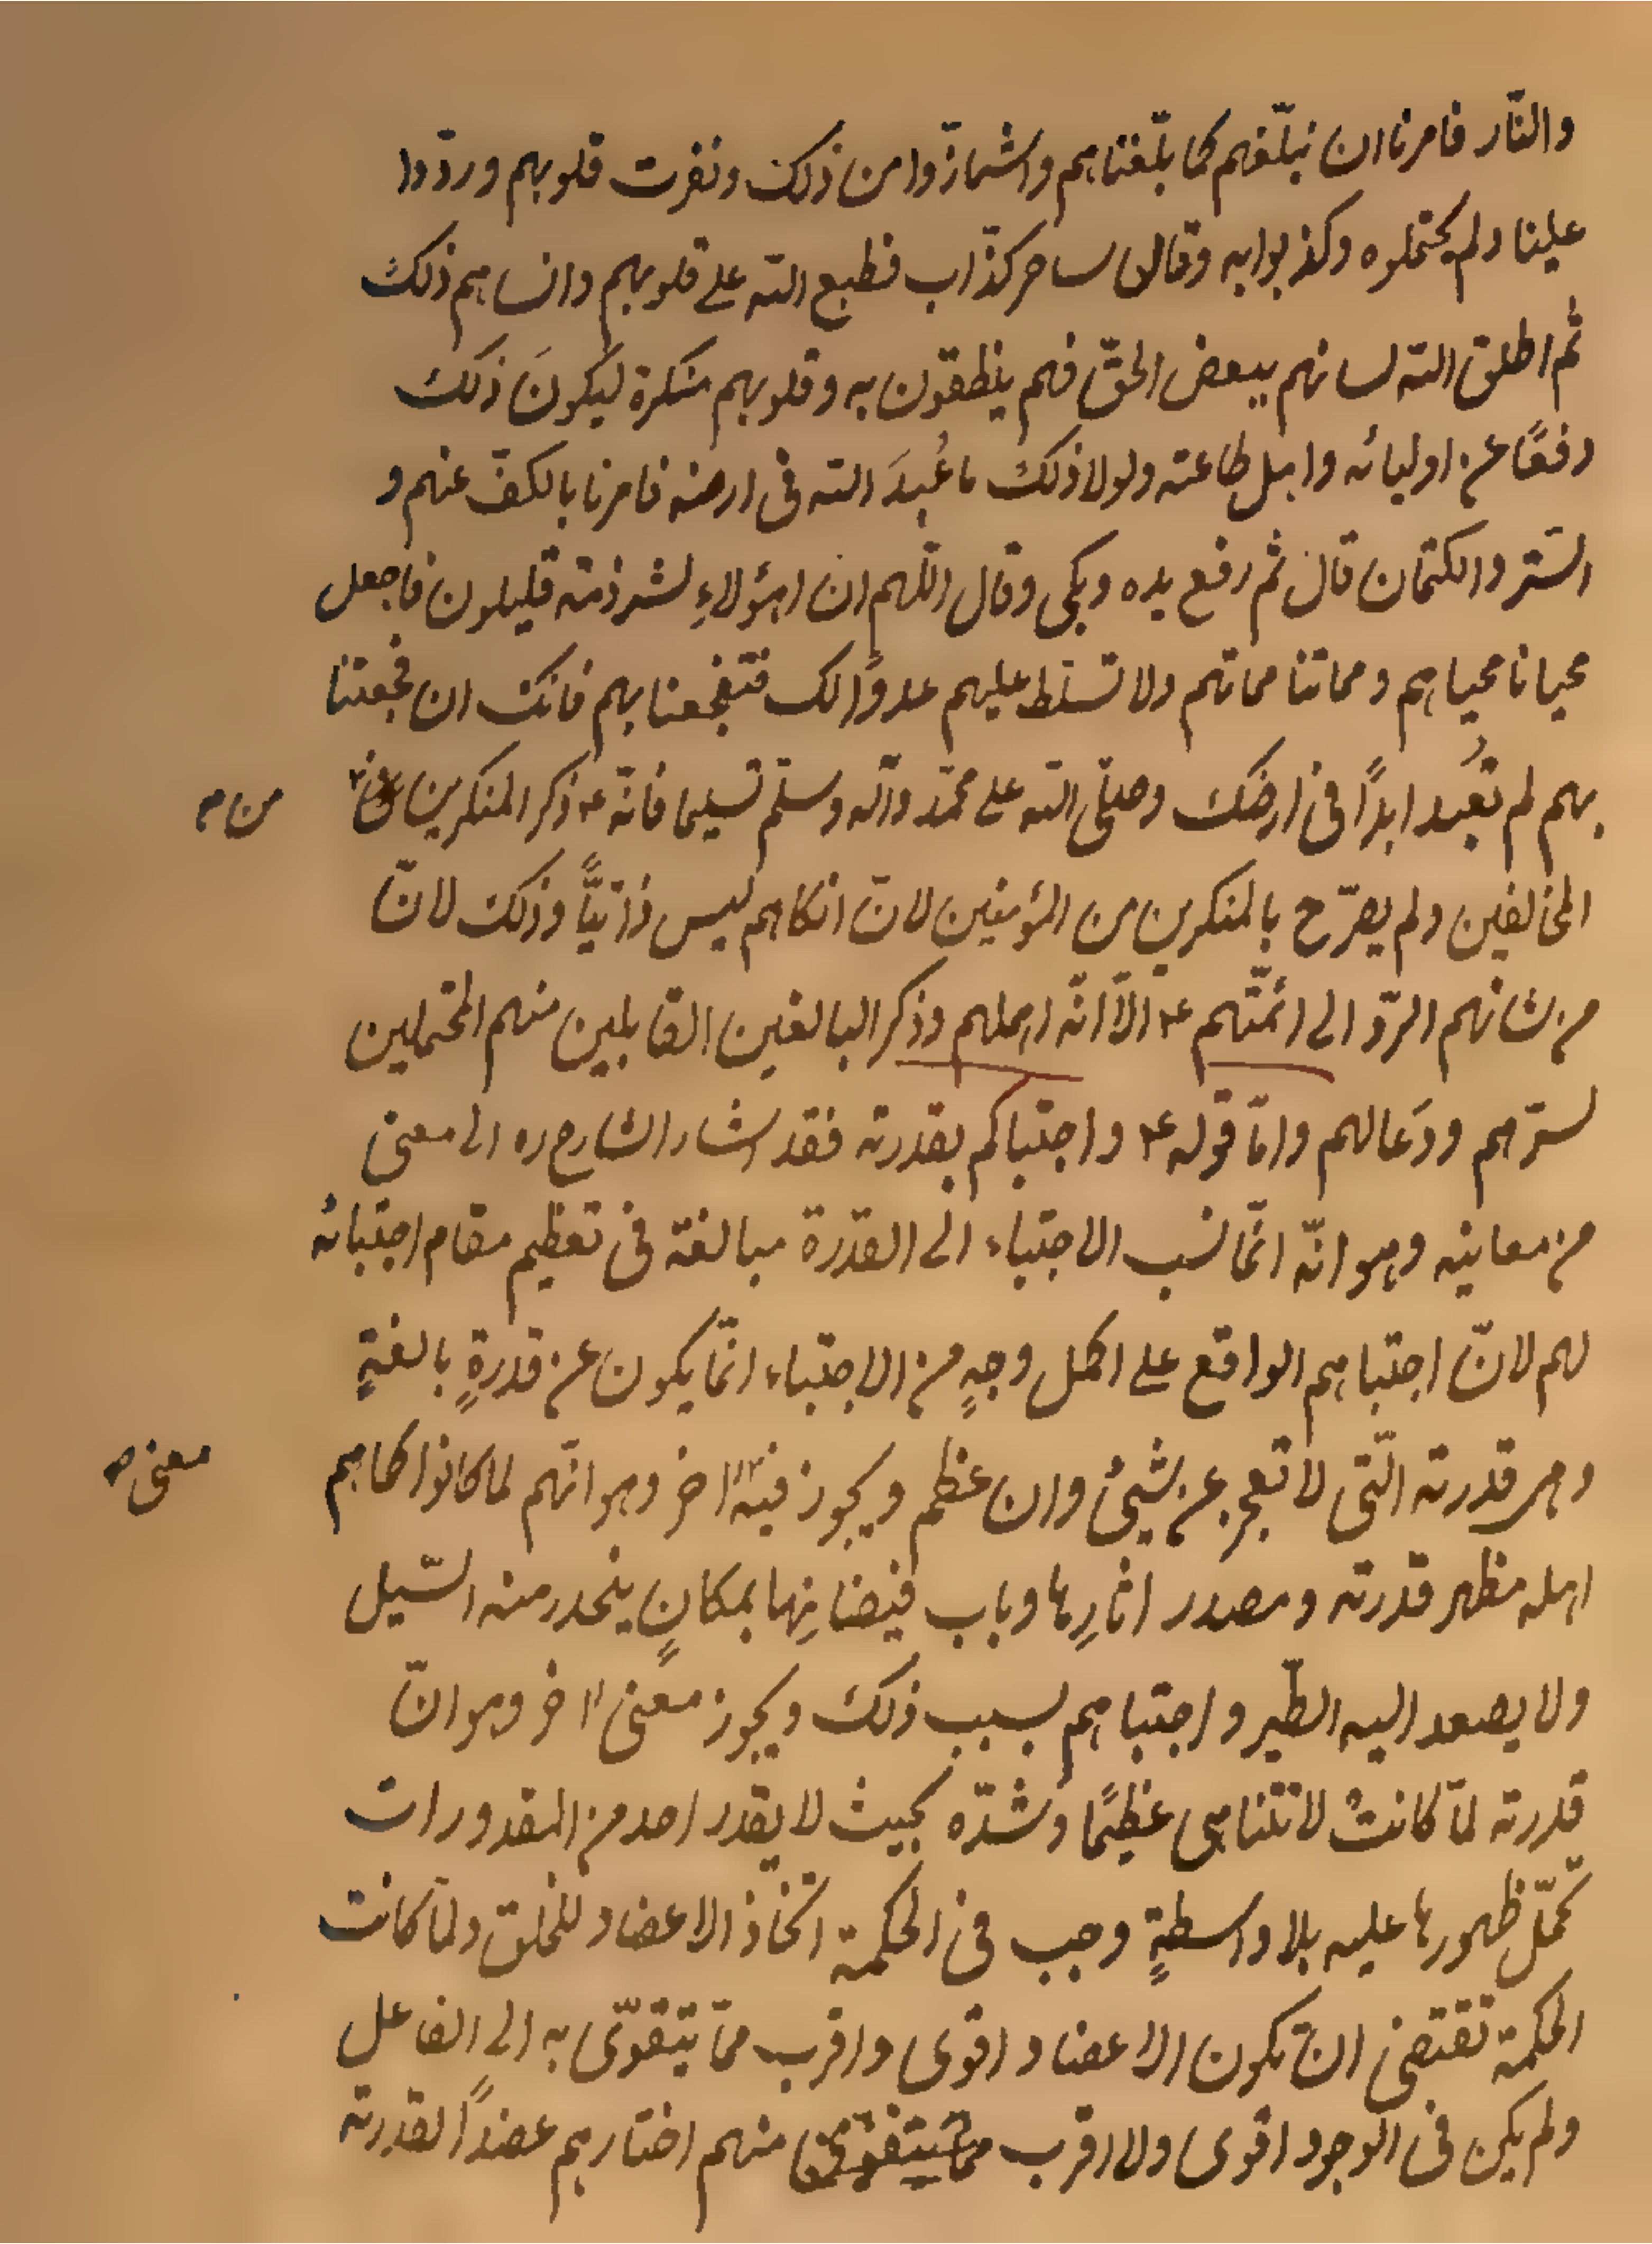 والنّار فامرنا ان نبلّغهم كما بلّغناهم واشمازّوا من ذلك ونفرت قلوبهم وردّوا
علينا ولم يحتملوه وكذبوا به وقالوا ساحر كذّاب فطبع الله على قلوبهم وانساهم ذلك
ثم اطلق الله لسانهم ببعض الحقّ فهم ينطقون به وقلوبهم منكرة ليكونَ ذلك
دفعًا عن اوليائه واهل طاعته ولولا ذلك ما عُبِدَ الله فى ارضه فامرنا بالكفّ عنهم و
الستر والكتمان قال ثم رفع يده وبكى وقال اللّهم ان هؤلاءِ لشرذمة قليلون فاجعل
محيانا محياهم ومماتنا مماتهم ولا تسلّط عليهم عدوًّا لك فتفجعنا بهم فانّك ان فجعتنا
بهم لم تُعبد ابدًا فى ارضك وصلّى الله على محمّد وآله وسلّم تسليما فانّه ع ذكر المنكرين
من
المخالفين ولم يصرّح بالمنكرين من المؤمنين لانّ انكاهم ليس ذاتيًّا وذلك لانّ
من شانهم الردّ الى ائمّتهم ع الّا انّه اهملهم وذكر البالغين القابلين منهم المحتملين
لسرّهم ودعا لهم وامّا قوله ع واجتباكم بقدرته فقد اشار الشارح ره الى معنى
من معانيه وهو انّه انّما نسب الاجتباء الى القدرة مبالغة فى تعظيم مقام اجتبائه
لهم لانّ اجتباهم الواقع على اكمل وجهٍ من الاجتباء انّما يكون عن قدرةٍ بالغةٍ
وهى قدرته الّتى لا تعجز عن شيئ وان عظم ويجوز فيه اخر وهو انّهم لما كانوا كما هم
معنى
اهله مظهر قدرته ومصدر اثارِها وباب فيضانِها بمكانٍ ينحدر منه السّيل
ولا يصعد اليه الطّير واجتباهم بسبب ذلك ويجوز معنى اخر وهو انّ
قدرته لمّا كانت لا تتناهى عظيمًا وشدّه بحيث لا يقدر احد من المقدورات
تحمّل ظهورها عليه بلا واسطةٍ وجب فى الحكمة اتّخاذ الاعضاد للخلق ولمّا كانت
الحكمة تقتضى ان تكون الاعضاد اقوى واقرب ممّا يتقوّى به الى الفاعل
ولم يكن فى الوجود اقوى ولا اقرب منهم اختارهم عضدًا لقدرته